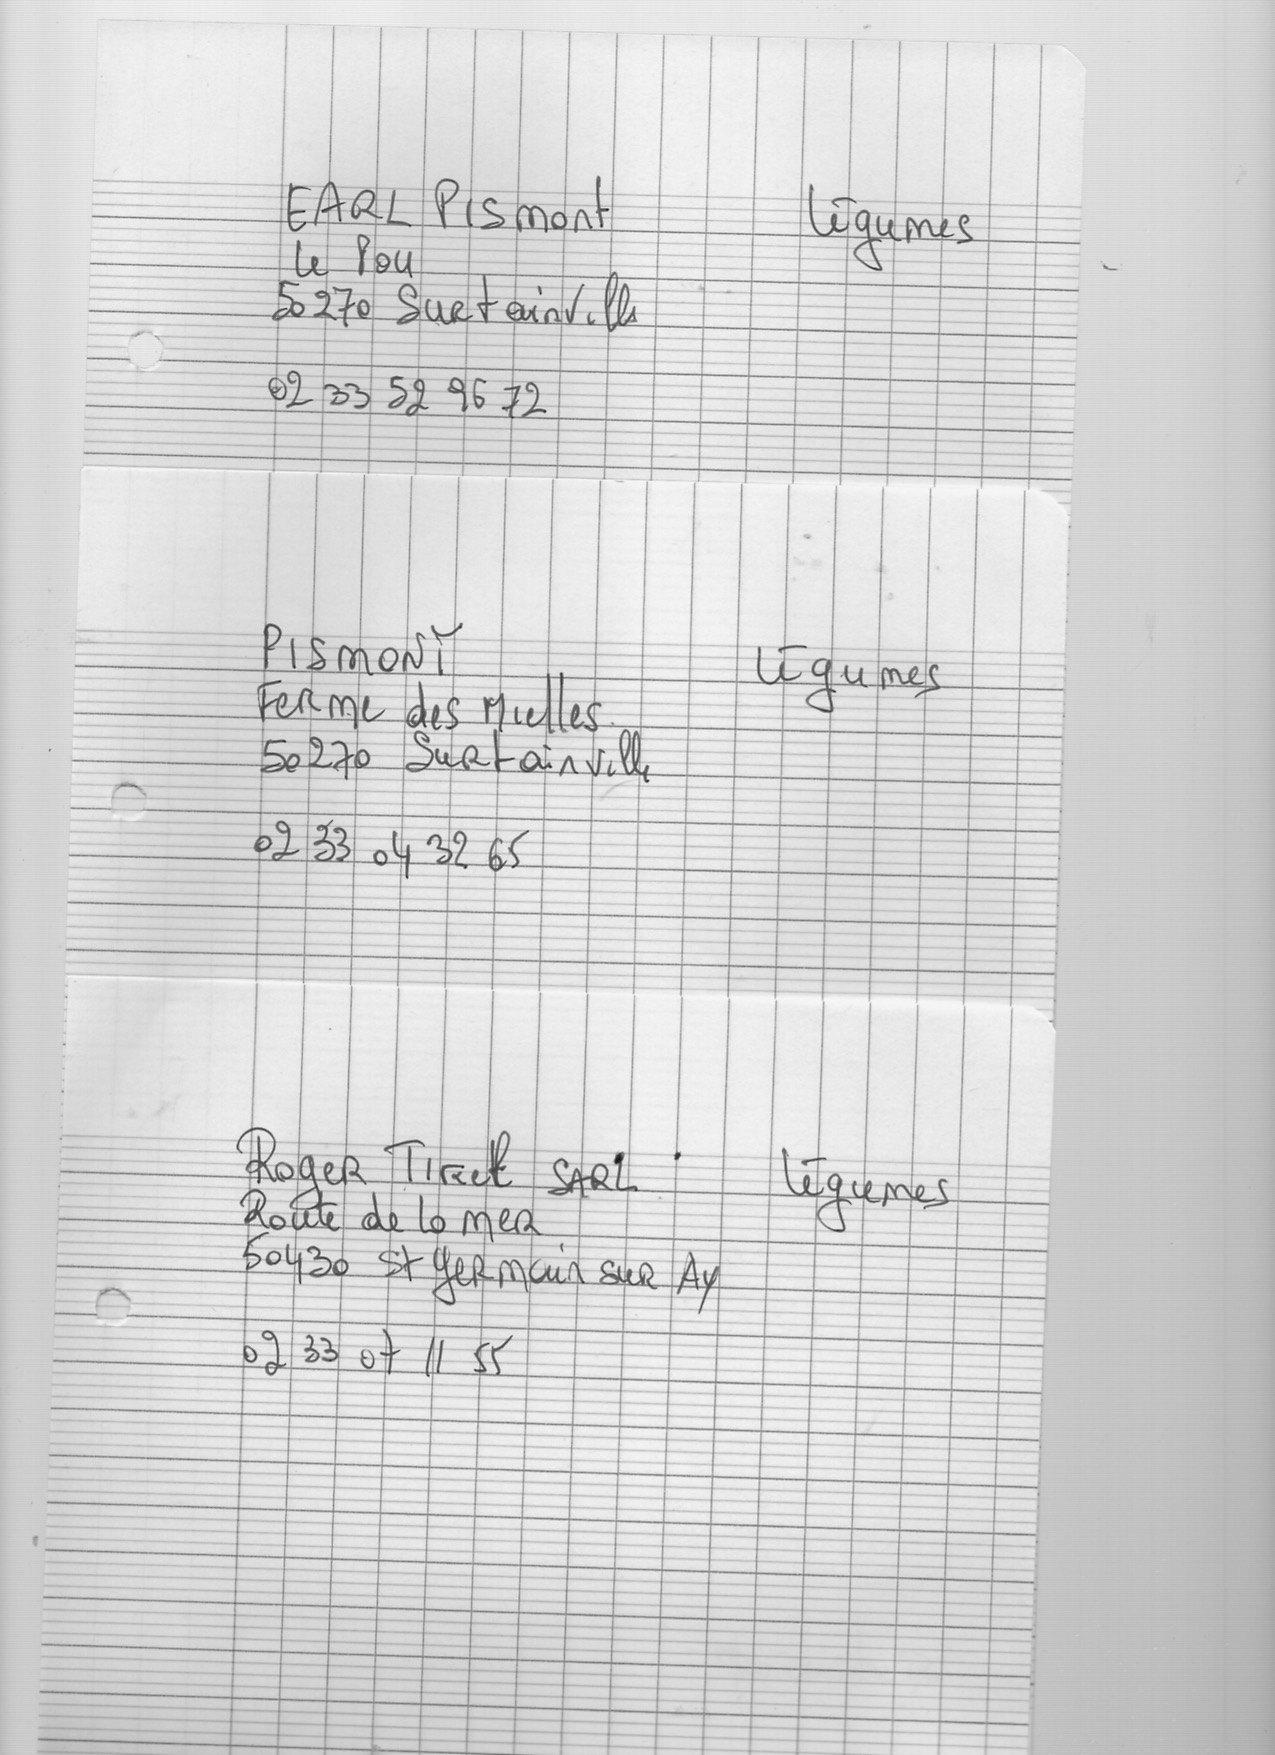 EARL Pismont
Légumes
Le Pou
50270 Surtainville
02 33 52 96 72
PISMONT
Légumes
Ferme des Mielles
50270 Surtainville
02 33 04 32 65
Roger Tirel SARL
Légumes
Route de la mer
50430 St Germain sur Ay
02 33 07 11 55